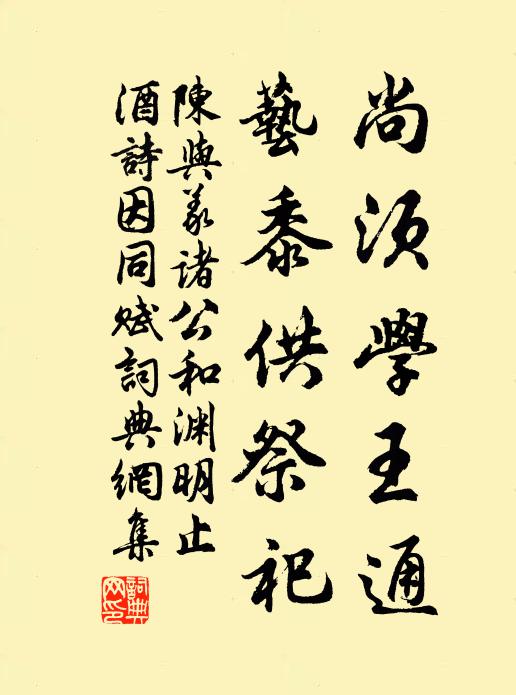 尚須學王通
藝黍供祭祀
陳與義諸公和渊明止
酒詩因同賦詞典網集
詞典網印